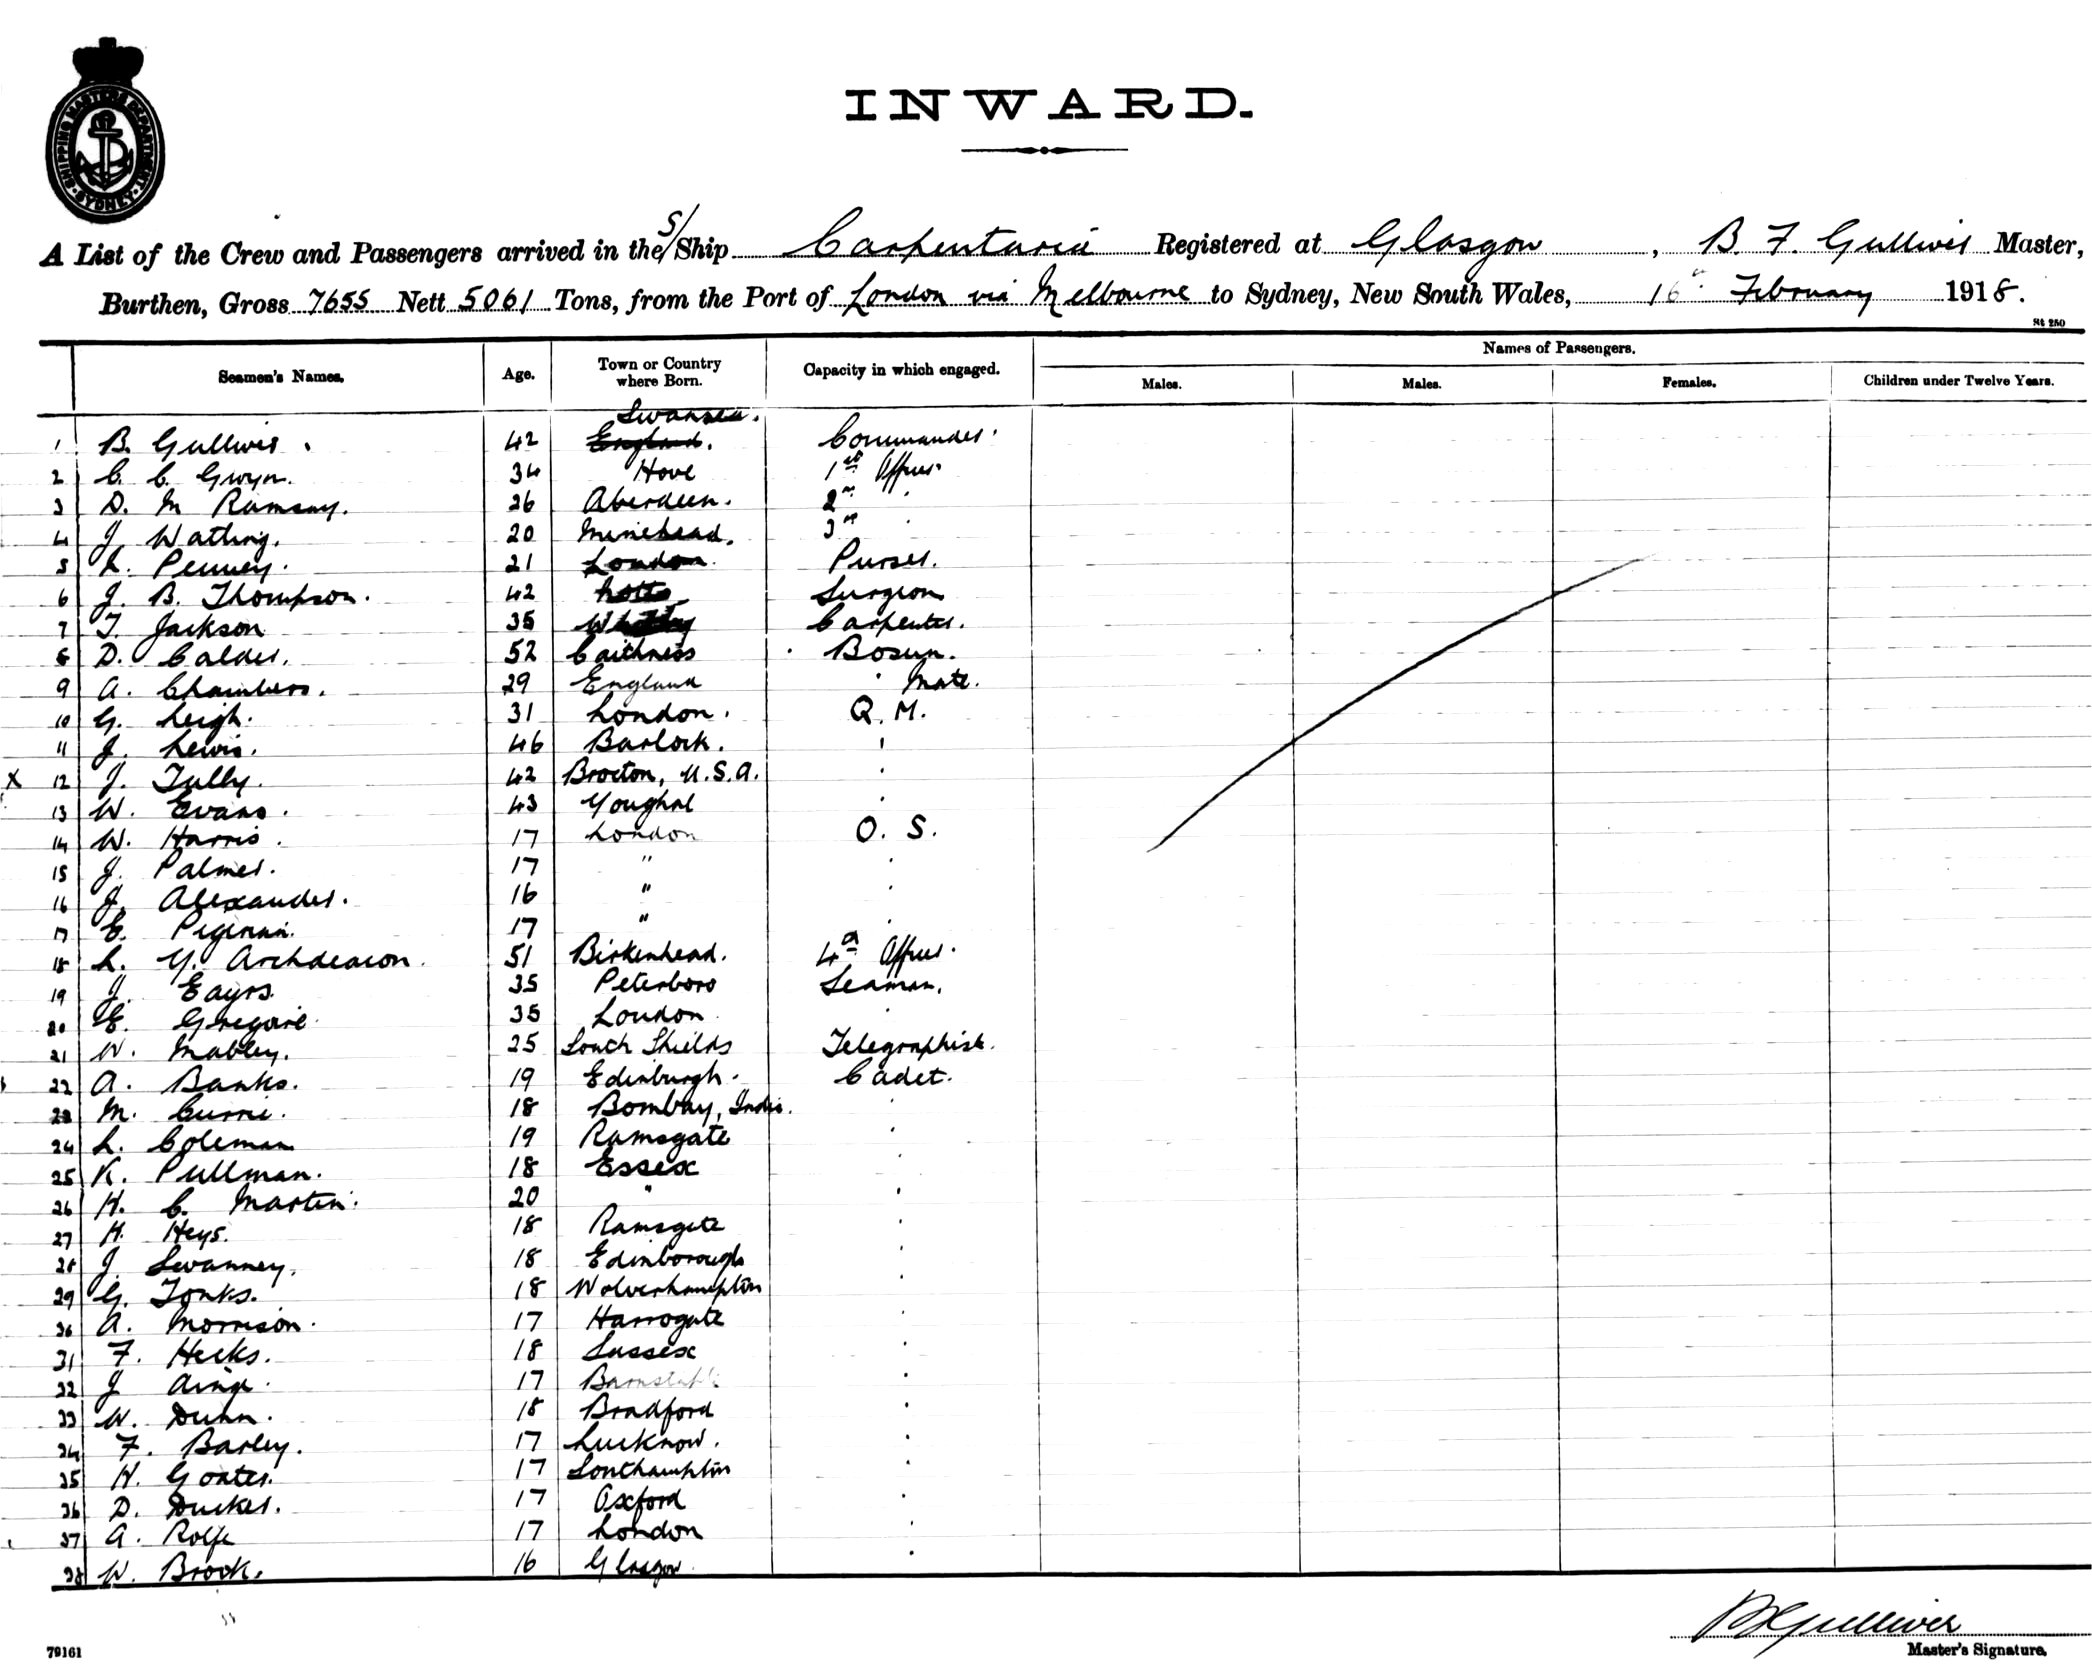 SHIPPING MASTERS DEPARTMENT
SYDNEY
INWARD.
A List of the Crew and Passengers arrived in the S/Ship Carpentaria Registered at Glasgow, B. F. Gulliver Master,
Burthen, Gross 7655 Nett 5061 Tons, from the Port of London via Melbourne to Sydney, New South Wales, 16th February 1918.
St 250
Seamen's Names. Age. Town or Country where Born. Capacity in which engaged. Names of Passengers.
Males. Males. Females. Children under Twelve Years.
Swansea.
1 B. Gulliver. 42 England. Commander.
2 C. C. Gwyn. 34 Hove 1st Officer
3 D. M Ramsay. 26 Aberdeen. 2nd "
4 J Watling. 20 Minehead. 3rd "
5 L. Penney. 21 London. Purser.
6 J. B. Thompson. 42 Notts Surgeon
7 T. Jackson 35 Whitby Carpenter.
8 D. Calder. 52 Caithness Bosun.
9 A. Chambers. 29 England " Mate.
10 G. Leigh. 31 London. Q. M.
11 J. Lewis. 46 Barlock. "
X 12 J. Tully. 42 Brocton, U.S.A. "
13 W. Evans. 43 Youghal "
14 W. Harris. 17 London O. S.
15 J. Palmer. 17 " "
16 J. Alexander. 16 " "
17 E. 17 " "
18 L. Y. Archdeacon. 51 Birkenhead. 4th Officer.
19 J. Eayrs. 35 Peterboro Seaman.
20 E. Gregoire. 35 London "
21 W. Mabley. 25 South Shields Telegraphist.
22 A. Banks. 19 Edinburgh. Cadet.
23 M. Currie. 18 Bombay, India. "
24 L. Coleman 19 Ramsgate "
25 K. Pullman. 18 Essex "
26 H. C. Martin. 20 " "
27 H. Heys. 18 Ramsgate "
28 J. Swanney. 18 Edinborough "
29 G. Tonks. 18 Wolverhampton "
30 A. Morrison. 17 Harrogate "
31 F. Hecks. 18 Sussex "
32 J 17 Barnstable "
33 W. Dunn. 18 Bradford "
34 F. Barley. 17 Lucknow. "
35 H. Goater. 17 Southampton "
36 D. Ducker. 17 Oxford "
37 A. Rolfe 17 London "
38 W. Brook. 16 Glasgow "
B F Gulliver
Master's Signature.
79161